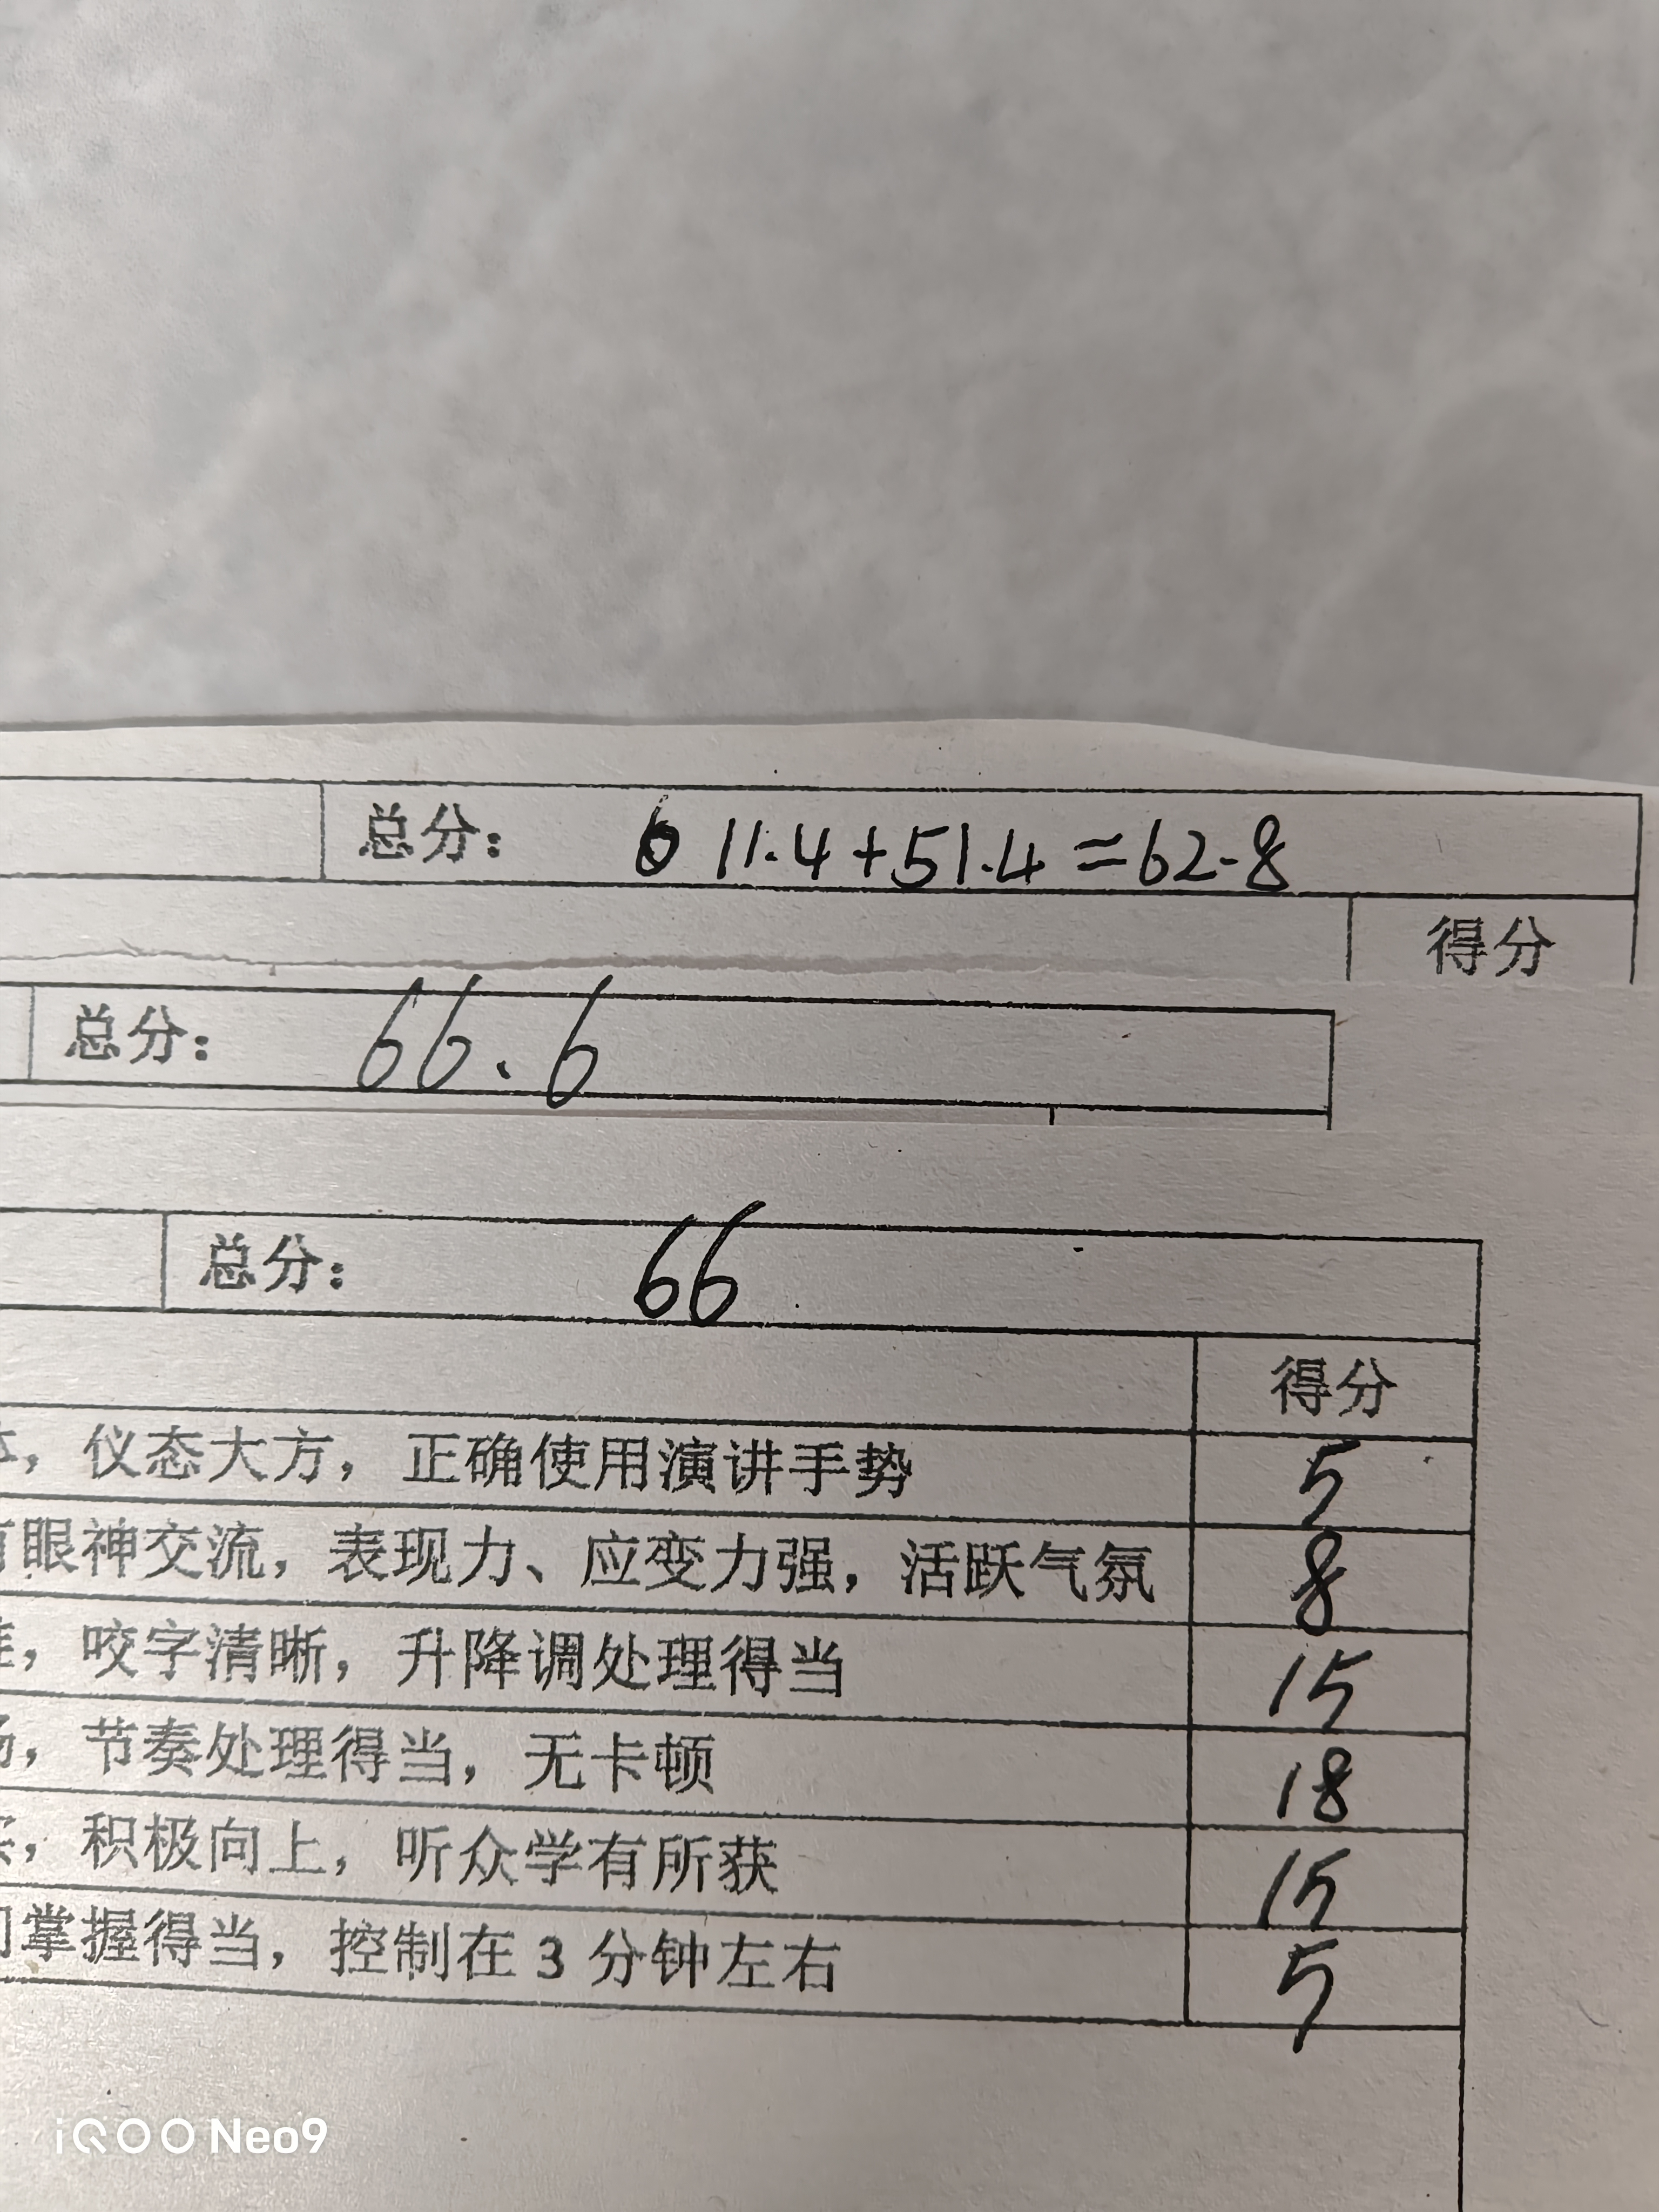 总分： 6 11.4+51.4=62.8
得分
总分： 66.6
总分： 66
得分
，仪态大方，正确使用演讲手势 5
眼神交流，表现力、应变力强，活跃气氛 8
，咬字清晰，升降调处理得当 15
，节奏处理得当，无卡顿 18
，积极向上，听众学有所获 15
掌握得当，控制在 3 分钟左右 5
iQOO Neo9